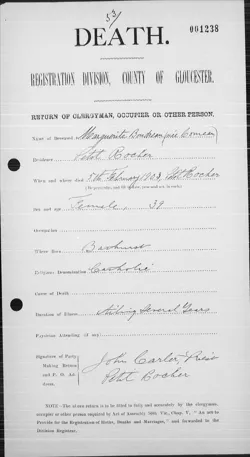 53/
001238
DEATH.
REGISTRATION DIVISION, COUNTY OF GLOUCESTER.
RETURN OF CLERGYMAN, OCCUPIER OR OTHER PERSON.
Name of Deceased Marguerite Boudreau (née Comeau)
Residence Petit Rocher
When and where died 5th February Petit Rocher
Sex and age Female, 39
Occupation
Where Born Bathurst
Religious Denomination Catholic
Cause of Death
Duration of Illness Ailing Several Years
Physician Attending (if any)
Signature of Party
Making Return
and P. O. Address,
John Carter, Priest
Petit Rocher
NOTE.—The above return to be filled in fully and accurately by the clergyman,
occupier or other person required by Act of Assembly 50th Vic., Chap. V, "An Act to
Provide for the Registration of Births, Deaths and Marriages," and forwarded to the
Division Registrar.